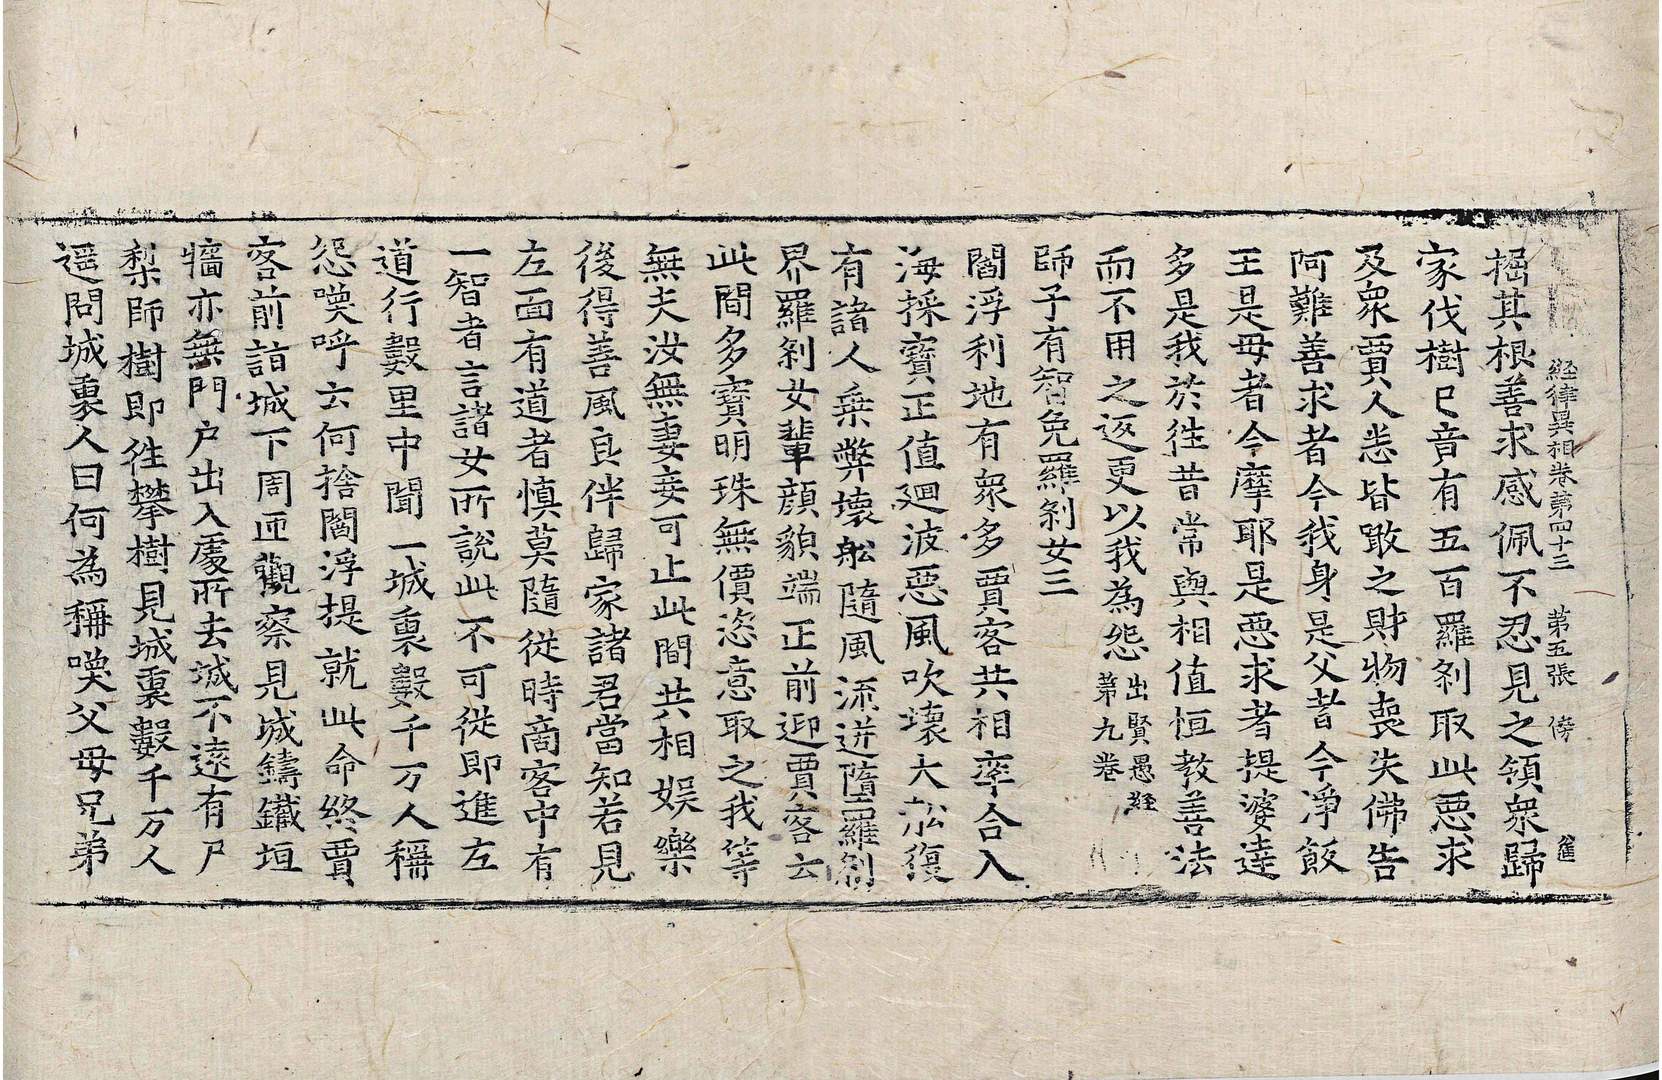 経律異相卷第四十三 第五張 傍
掘其根善求感佩不忍見之領衆歸
家伐樹已竟有五百羅剎取此惡求
及衆賈人悉皆噉之財物喪失佛告
阿難善求者今我身是父者今淨飯
王是母者今摩耶是惡求者提婆達
多是我於徃昔常與相值恒教善法
而不用之返更以我為怨出賢愚経第九卷
師子有智免羅剎女三
閻浮利地有衆多賈客共相率合入
海採寶正值迴波惡風吹壞大舩復
有諸人乗弊壞舩隨風流迸墮羅剎
界羅剎女輩顏貌端正前迎賈客云
此間多寶明珠無價恣意取之我等
無夫汝無妻妾可止此間共相娛樂
後得善風良伴歸家諸君當知若見
左面有道者慎莫隨從時商客中有
一智者言諸女所說此不可從即進左
道行數里中聞一城裏數千万人稱
怨嘆呼云何捨閻浮提就此命終賈
客前詣城下周迊觀察見城鑄鐵垣
牆亦無門户出入處所去城不遠有尸
梨師樹即徃攀樹見城裏數千万人
遥問城裏人曰何為稱嘆父母兄弟